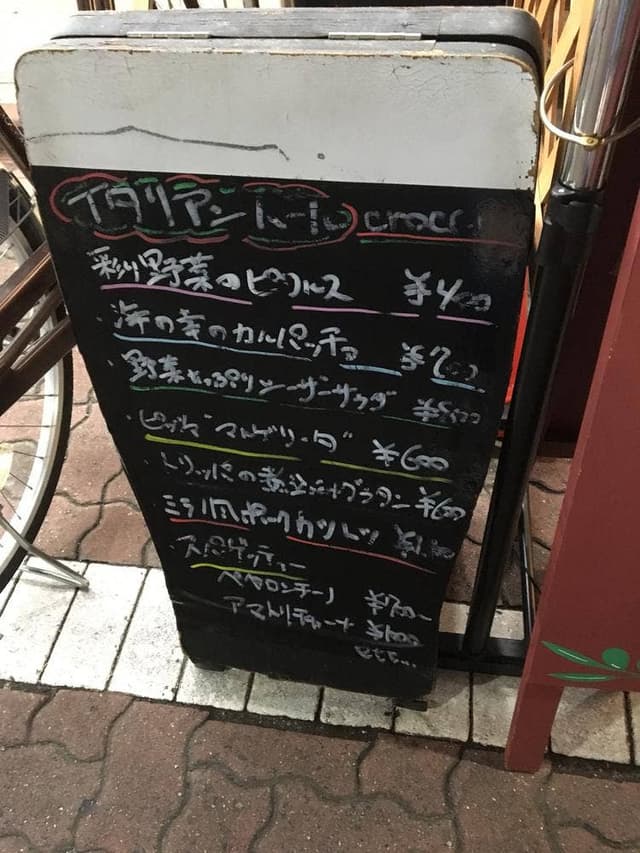 イタリアンバール crocc
彩り野菜のピクルス ¥400
・海の幸のカルパッチョ ¥700
・野菜たっぷりシーザーサラダ
・ピッツァ マルゲリータ ¥600
・トリッパの煮込みグラタン ¥600
ミラノ風ポークカツレツ
・スパゲッティー
ペペロンチーノ ¥700-
アマトリチャーナ
etc...